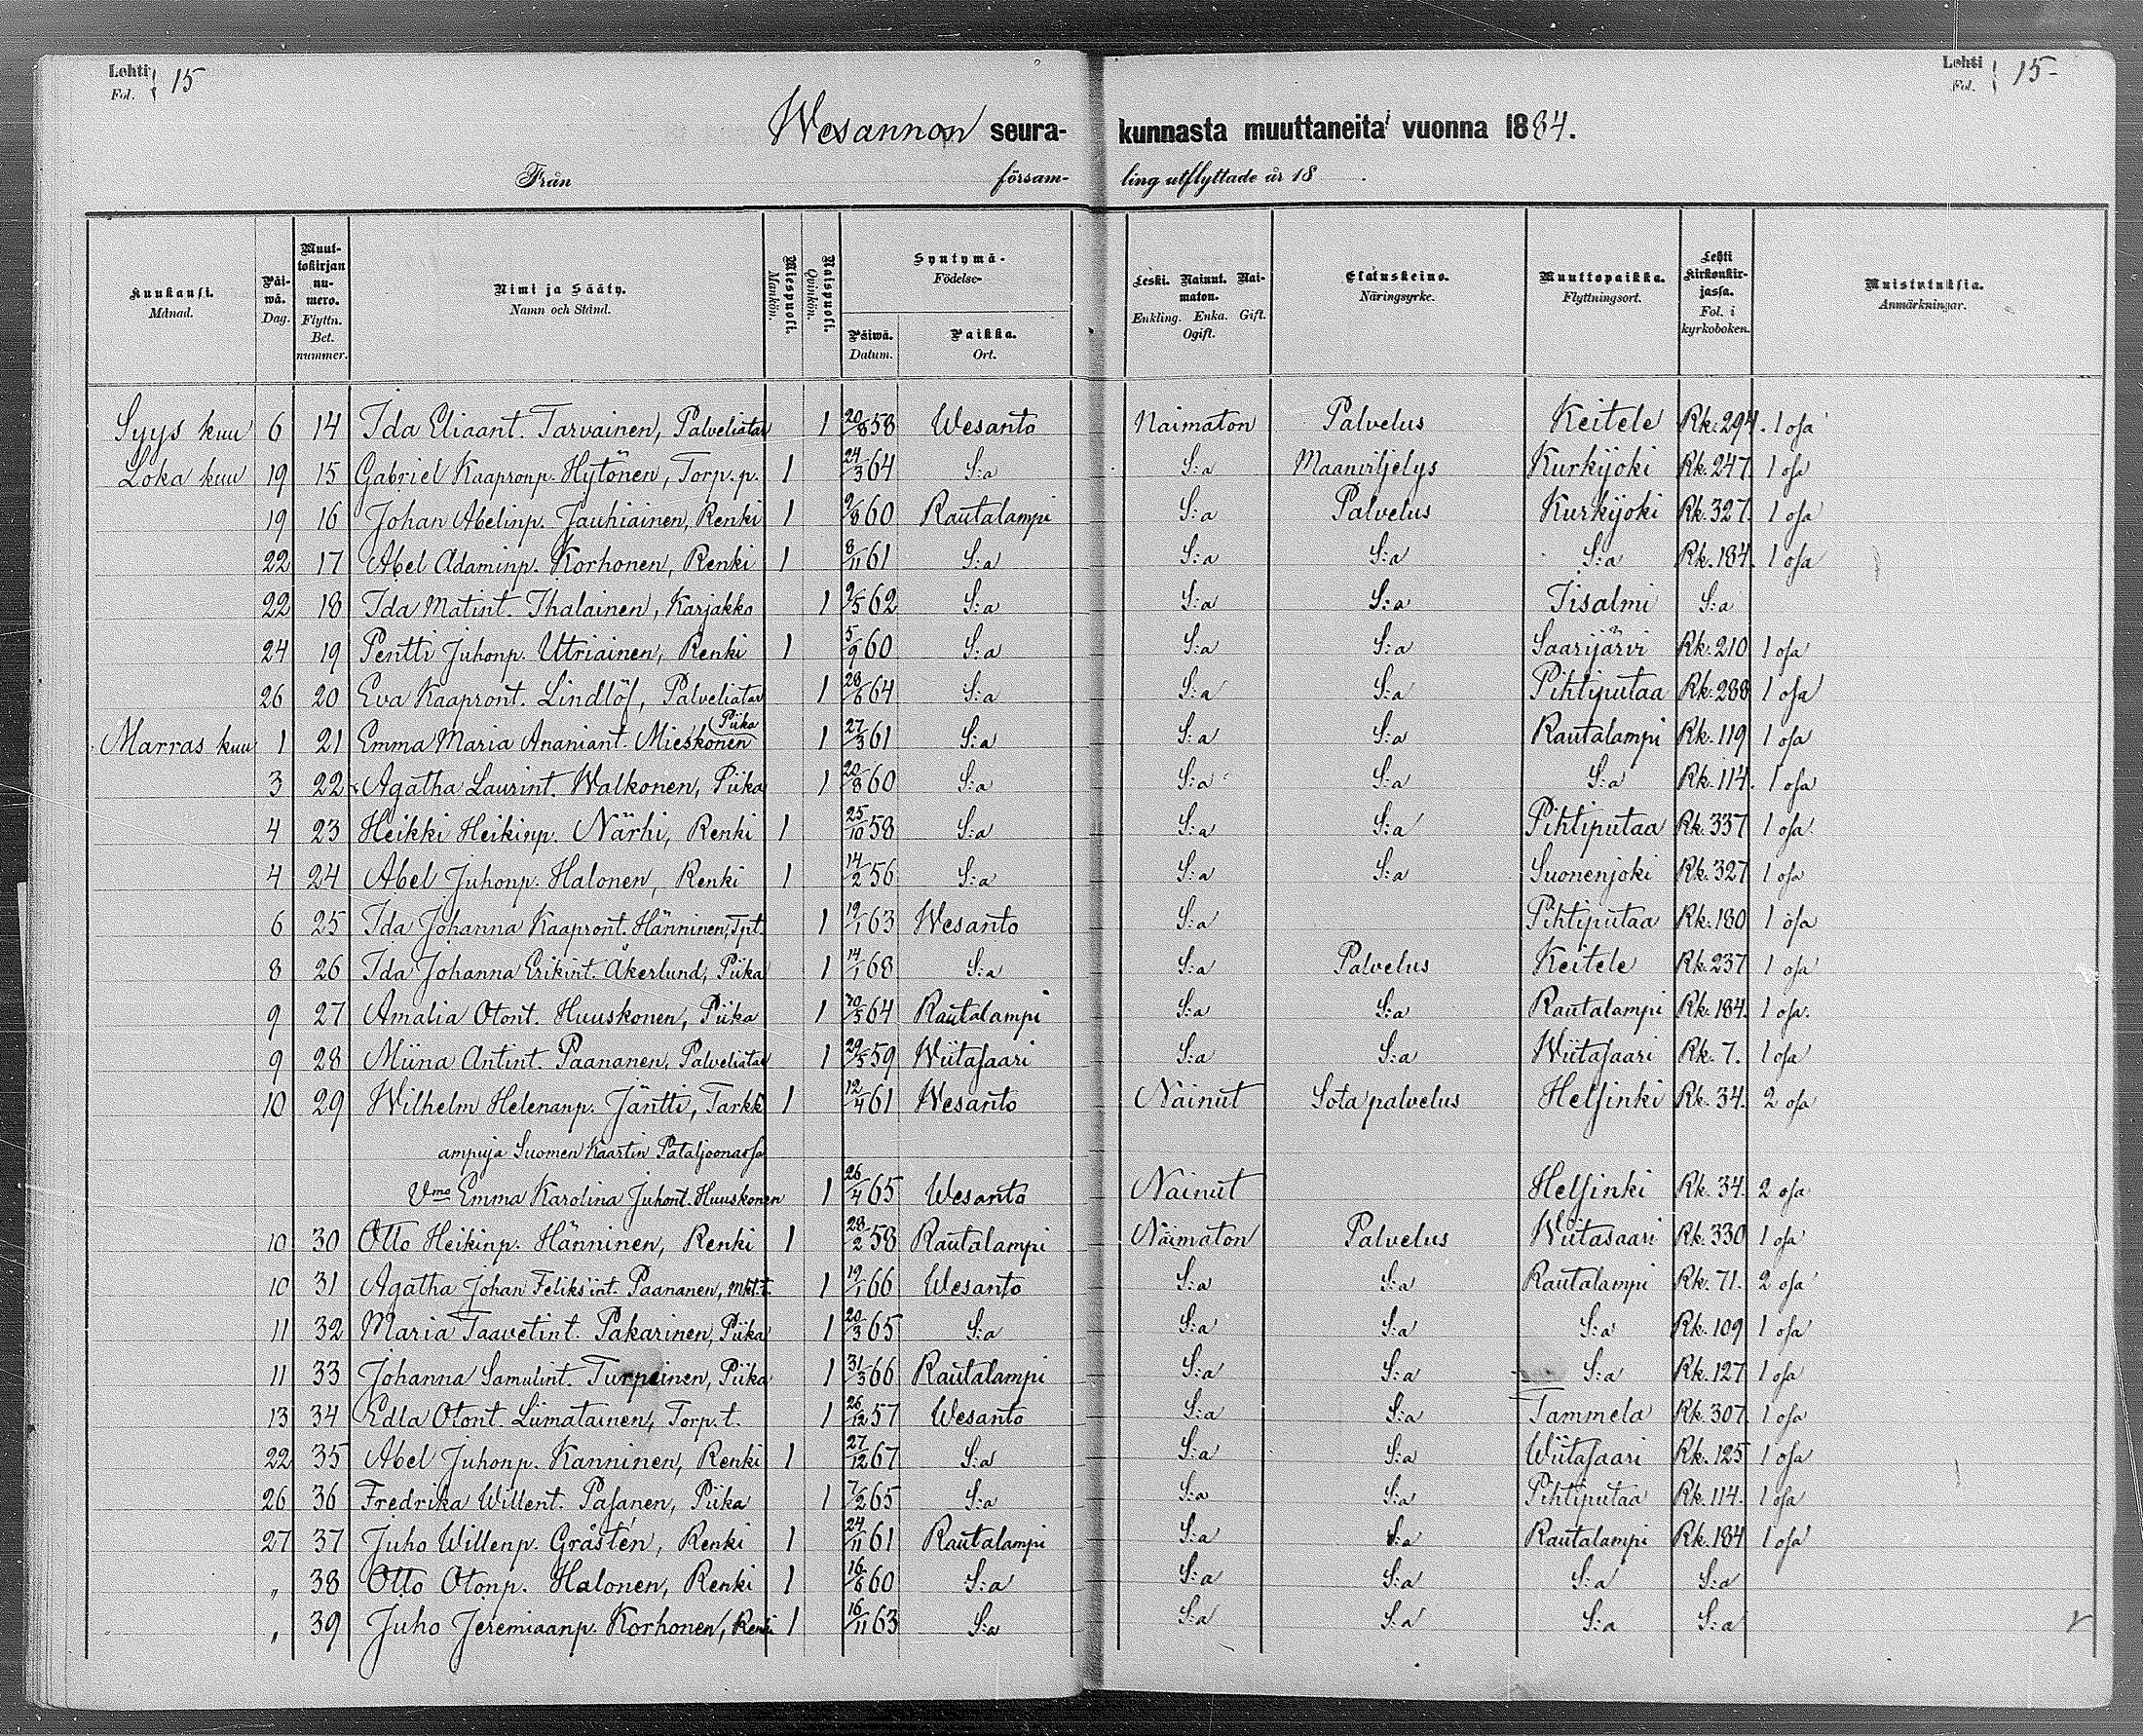 Lehti Fol. } 15
Lehti Fol. } 15-
Wesannon seura- kunnasta muuttaneita vuonna 1884.
Från försam- ling utflyttade år 18
Kuukausi. Månad. | Päi-wä. Dag. | Muut-tokirjan nu-mero. Flyttn. Bet. nummer. | Nimi ja Sääty. Namn och Stånd. | Miespuoli. Mankön. | Naispuoli. Qvinkön. | Syntymä- Födelse- Päiwä. Datum. | Paikka. Ort. | Leski. Nainut. Nai-maton. Enkling. Enka. Gift. Ogift. | Elatuskeino. Näringsyrke. | Muuttopaikka. Flyttningsort. | Lehti Kirkonkir-jassa. Fol. i kyrkoboken. | Muistutuksia. Anmärkningar.
Syys kuu 6 14 Ida Eliaant. Tarvainen, Palveliatar 1 20/8 58 Wesanto Naimaton Palvelus Keitele Rk. 294. 1 osa
Loka kuu 19 15 Gabriel Kaapronp. Hytönen, Torp. p. 1 24/3 64 S:a S:a Maanviljelys Kurkijoki Rk. 247. 1 osa
19 16 Johan Abelinp. Jauhiainen, Renki 1 9/8 60 Rautalampi S:a Palvelus Kurkijoki Rk. 327. 1 osa
22 17 Abel Adaminp. Korhonen, Renki 1 8/11 61 S:a S:a S:a S:a Rk. 184. 1 osa
22 18 Ida Matint. Thalainen, Karjakko 1 9/5 62 S:a S:a S:a Iisalmi S:a
24 19 Pentti Juhonp. Utriainen, Renki 1 5/9 60 S:a S:a S:a Saarijärvi Rk. 210 1 osa
26 20 Eva Kaapront. Lindlöf, Palveliatar 1 28/8 64 S:a S:a S:a Pihtiputaa Rk. 288 1 osa
Marras kuu 1 21 Emma Maria Ananiant. Mieskonen Piika 1 27/3 61 S:a S:a S:a Rautalampi Rk. 119 1 osa
3 22 Agatha Laurint. Walkonen, Piika 1 20/8 60 S:a S:a S:a S:a Rk. 114. 1 osa
4 23 Heikki Heikinp. Närhi, Renki 1 25/10 58 S:a S:a S:a Pihtiputaa Rk. 337 1 osa.
4 24 Abel Juhonp. Halonen, Renki 1 14/2 56 S:a S:a S:a Suonenjoki Rk. 327 1 osa
6 25 Ida Johanna Kaapront. Hänninen, Tpt. 1 19/1 63 Wesanto S:a Pihtiputaa Rk. 180 1 osa
8 26 Ida Johanna Erikint. Åkerlund, Piika 1 14/1 68 S:a S:a Palvelus Keitele Rk. 237 1 osa
9 27 Amalia Otont. Huuskonen, Piika 1 30/5 64 Rautalampi S:a S:a Rautalampi Rk. 184. 1 osa.
9 28 Miina Antint. Paananen, Palveliatar 1 29/5 59 Wiitasaari S:a S:a Wiitasaari Rk. 7. 1 osa
10 29 Wilhelm Helenanp. Jäntti, Tarkk 1 12/4 61 Wesanto Nainut Sotapalvelus Helsinki Rk. 34. 2 osa
ampuja Suomen Kaartin Pataljoonassa
Vmo Emma Karolina Juhont. Huuskonen 1 26/4 65 Wesanto Nainut Helsinki Rk. 34. 2 osa
10 30 Otto Heikinp. Hänninen, Renki 1 28/2 58 Rautalampi Naimaton Palvelus Wiitasaari Rk. 330 1 osa
10 31 Agatha Johan Feliks'int. Paananen, mkt:t. 1 19/1 66 Wesanto S:a S:a Rautalampi Rk. 71. 2 osa
11 32 Maria Taavetint. Pakarinen, Piika 1 20/3 65 S:a S:a S:a S:a Rk. 109 1 osa
11 33 Johanna Samulint. Turpeinen, Piika 1 31/3 66 Rautalampi S:a S:a S:a Rk. 127 1 osa
13 34 Edla Otont. Liimatainen, Torp. t. 1 26/12 57 Wesanto S:a S:a Tammela Rk. 307 1 osa
22 35 Abel Juhonp. Kanninen, Renki 1 27/12 67 S:a S:a S:a Wiitasaari Rk. 125 1 osa
26 36 Fredrika Willent. Pasanen, Piika 1 7/2 65 S:a S:a S:a Pihtiputaa Rk. 114. 1 osa
27 37 Juho Willenp. Gråstén, Renki 1 24/11 61 Rautalampi S:a S:a Rautalampi Rk. 184 1 osa
" 38 Otto Otonp. Halonen, Renki 1 16/8 60 S:a S:a S:a S:a S:a
" 39 Juho Jeremiaanp. Korhonen, Renki 1 16/11 63 S:a S:a S:a S:a S:a